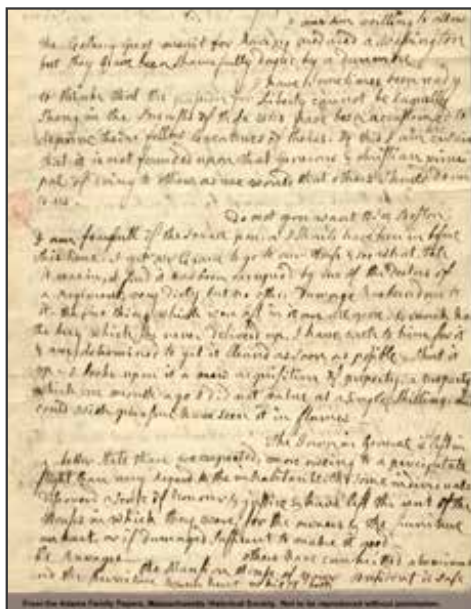 I am willing to allow
the Colony great merit for having produced a Washington
but they have been shamefully duped by a Dunmore.
I have sometimes been ready
to think that the passion for Liberty cannot be Equally
Strong in the Breasts of those who have been accustomed to
deprive their fellow Creatures of theirs. Of this I am certain
that it is not founded upon that generous & christian
of doing to others as we would that others should do
to us.
Do not you want to see Boston
I am fearfull of the small pox, or I should have been in before
this time. I got mr Crane to go to our House & see what state
it was in. I find it has been occupied by one of the Doctors of
a Regiment, very dirty but no other Damage has been done to
it. The few things which were left in it are all gone.
the key which he never delivered up. I have wrote to him for it
& am determined to get it cleand as soon as possible & shut it
up. I look upon it a new acquisition of property, a property
which one month ago I did not value at a single Shilling, &
could with pleasure have seen it in flames.
The Town in General is left in
a better state than we expected, more owing to a percipitate
flight than any regard to the inhabitants, tho some individuals
discoverd a sense of honour & justice & have left the rent of the
Houses in which they were, for the owners & the furniture
unhurt, or if damaged sufficent to make it good.
others have committed abominable
Ravages. The Mansion House of your President is safe
and the furniture unhurt whilst both
From the Adams Family Papers, Massachusetts Historical Society. Not to be reproduced without permission.